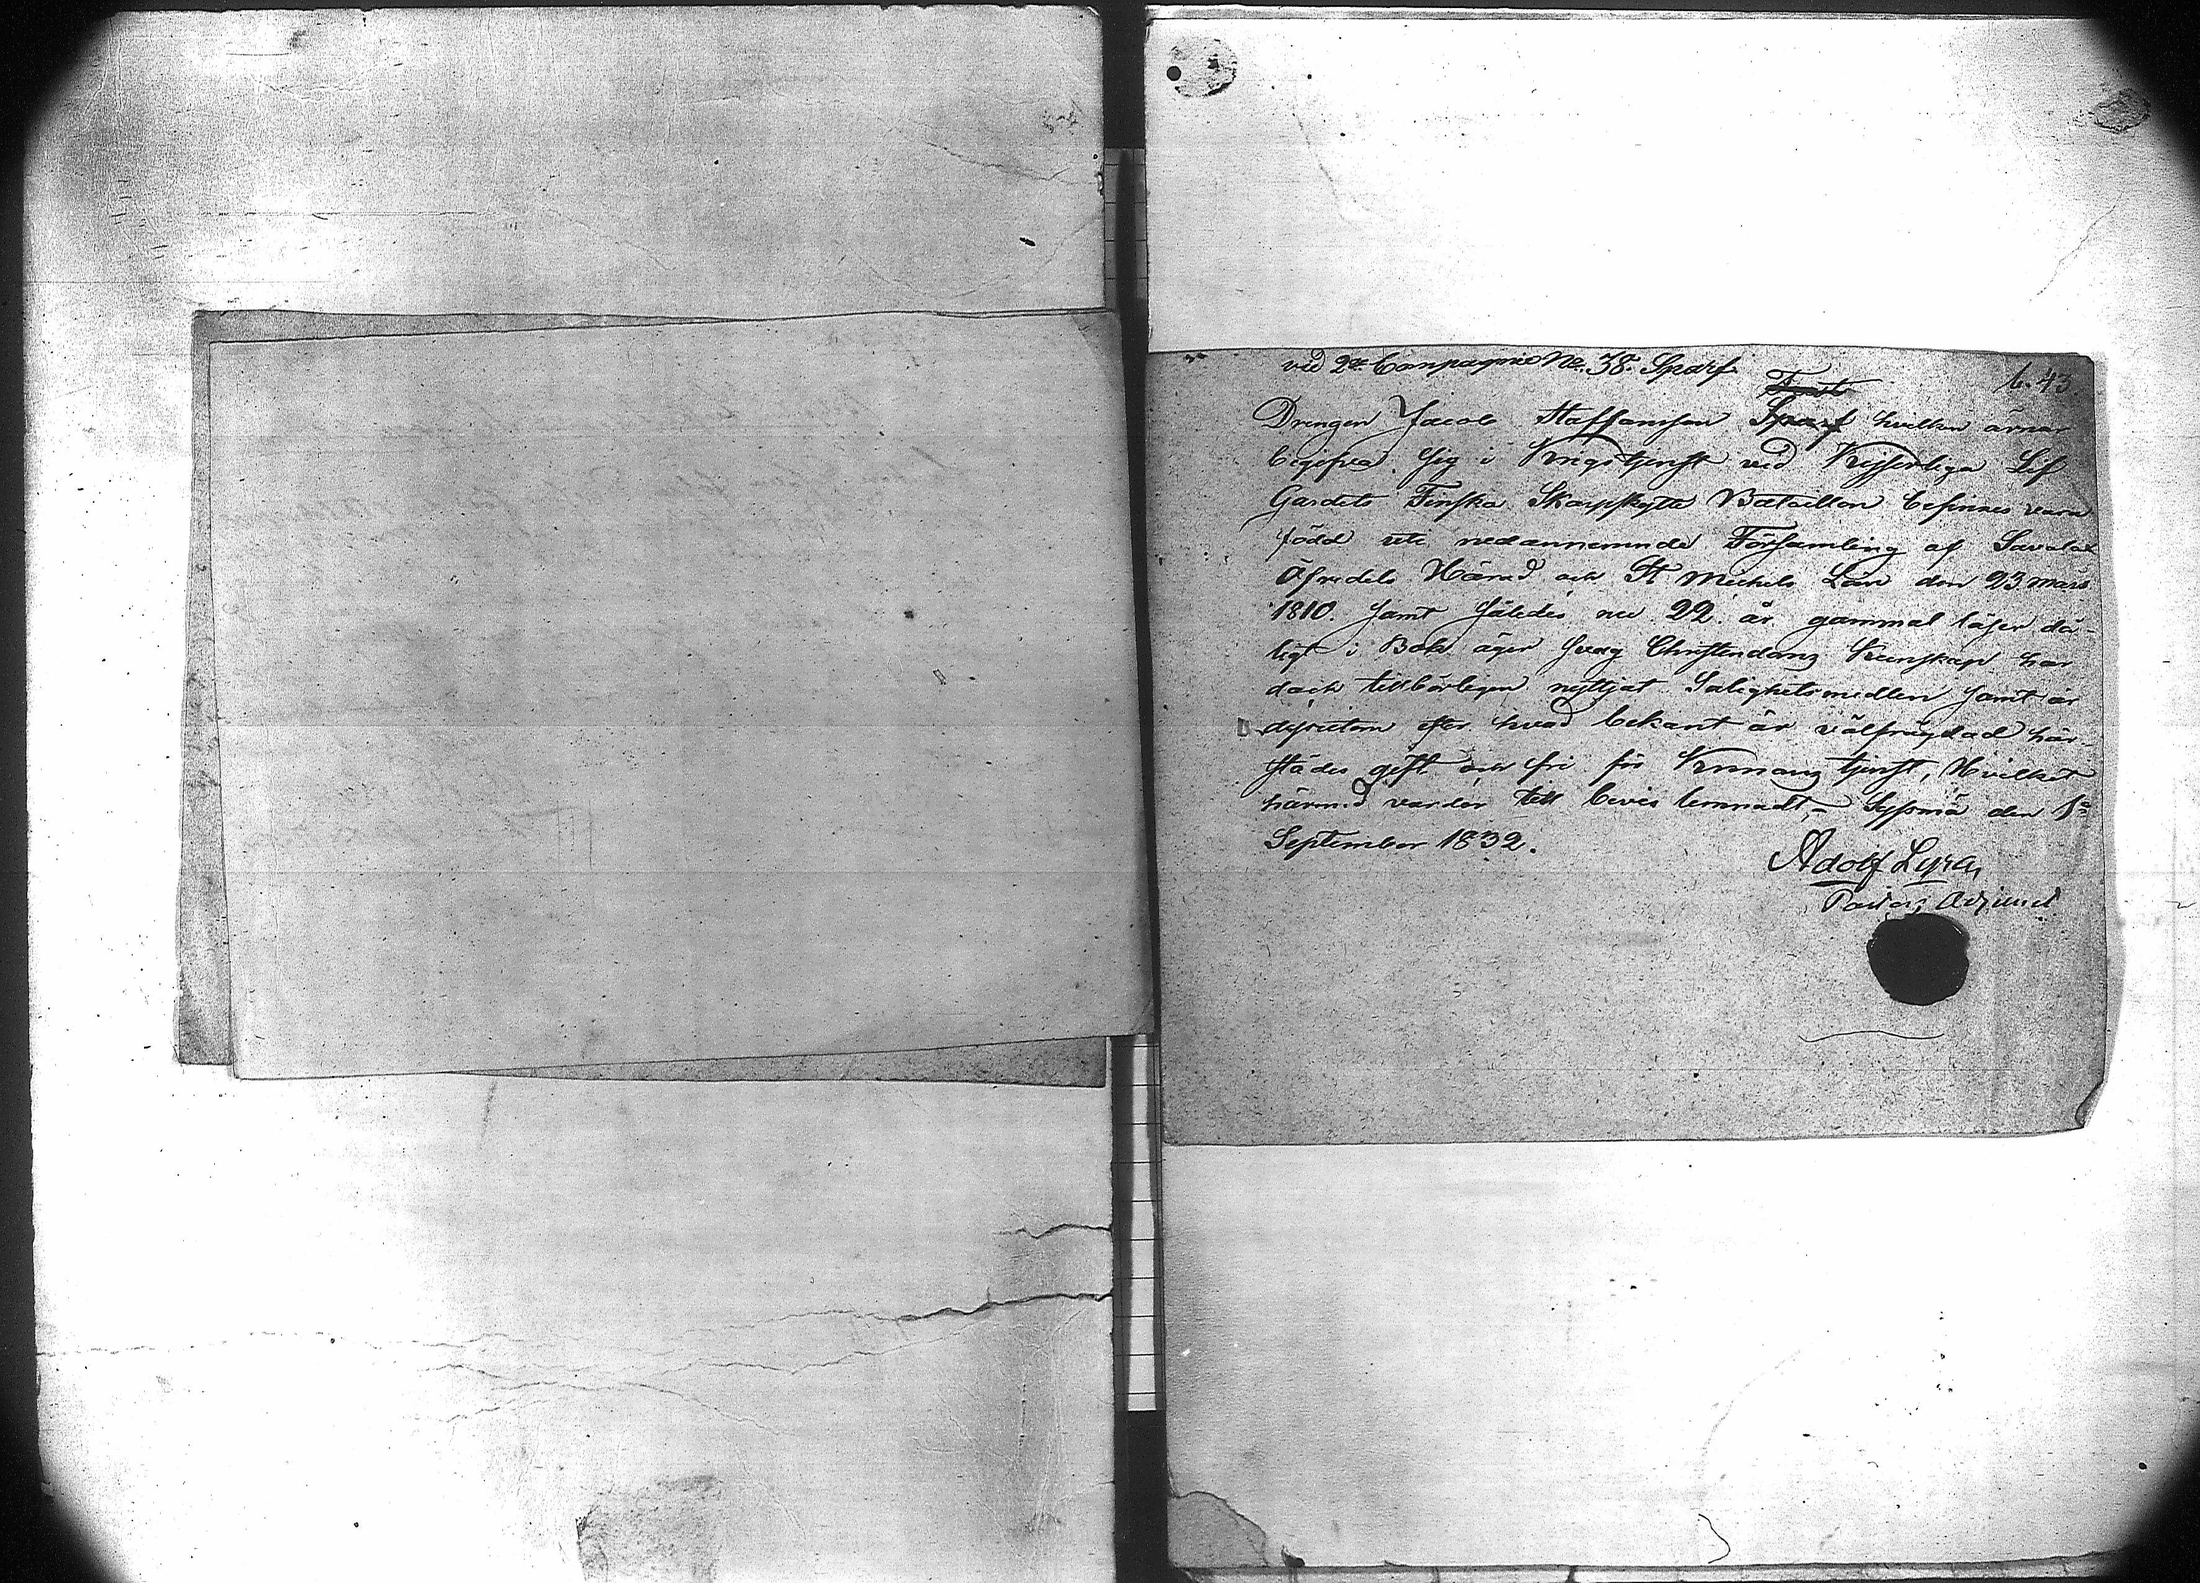 vid 2dr Compagnie No. 38. Sparf
b. 43.
Drengen Jacob Staffansson Sparf hvilken ärnar
begifva sig i Krigstjenst vid Kejserliga Lif
Gardets Finska Skarpskytte Bataillon befinnes vara
född uti nedannemnde Församling af Savolax
Öfredels Härad och St Michels Län den 23 mars
1810. samt således nu 22. år gammal läser då-
ligt i Bok äger svag Christendoms Kunskap har
dock tillbörligen nyttjat Salighetsmedlen samt är
dessutom efter hvad bekant är välfrägdad här-
städes gift och fri för Krono tjenst, Hvilket
härmed varder till bevis lemnadt, Sysmä den 1a
September 1832.
Adolf Lyra,
Pastors Adjunct